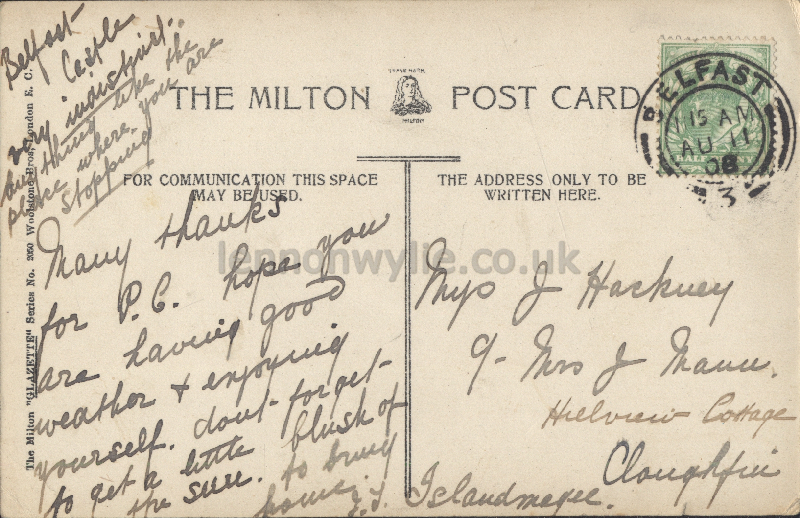 Belfast
Castle.
very industrial..
but thing like the
place where you are
stopping
THE MILTON POST CARD
MILTON
BELFAST
1 15 AM
AU 11
08
3
HALF PENNY
FOR COMMUNICATION THIS SPACE
MAY BE USED.
THE ADDRESS ONLY TO BE
WRITTEN HERE.
The Milton "GLAZETTE" Series No. 2050 Woolstone Bros., London E. C.
lennonwylie.co.uk
Many thanks
for P.C. hope you
are having good
weather & enjoying
yourself. dont forget
to get a little blush of
the sun. to bring
home.
Miss J Hackney
C/- Mrs J Mann.
Hillview Cottage
Cloughfin
Islandmagee.